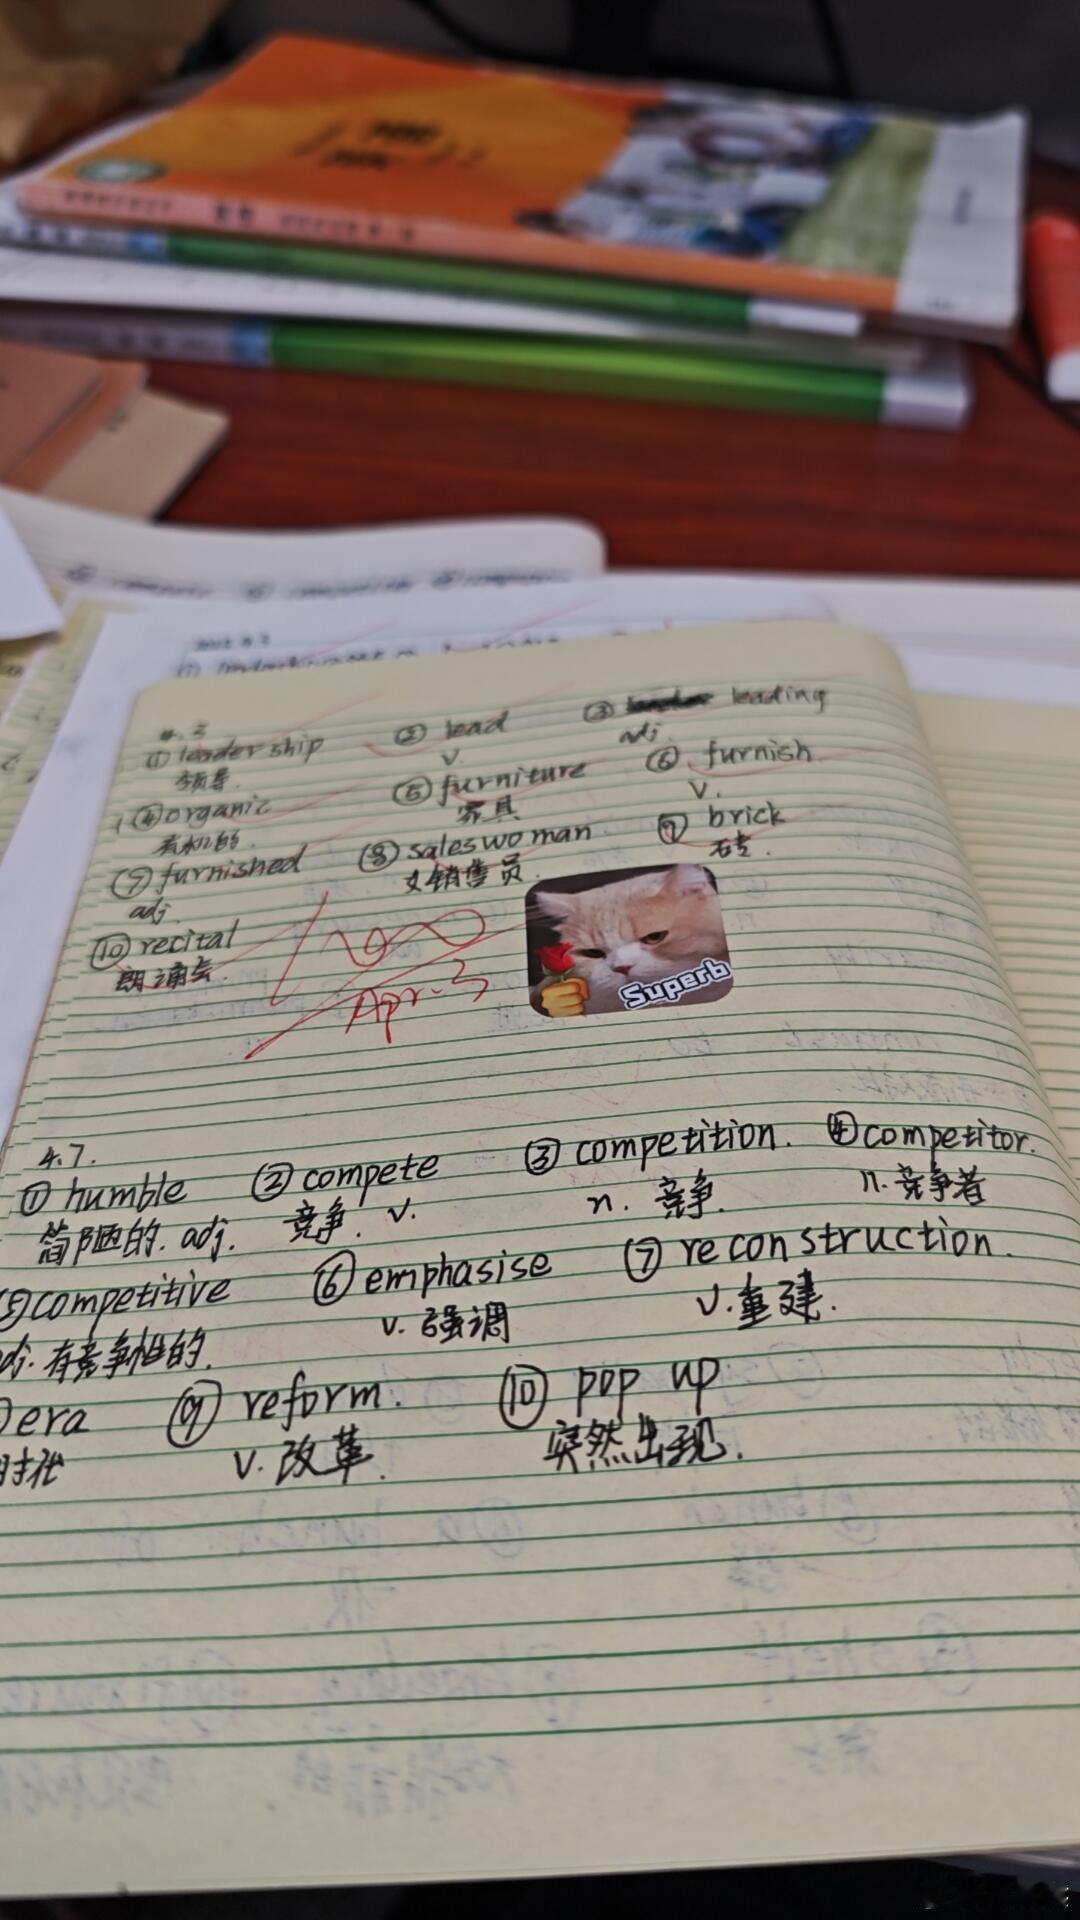 4.3
① leadership ② lead ③ leading
领导 v. adj.
④ organic ⑤ furniture ⑥ furnish
有机的. 家具 v.
⑦ furnished ⑧ saleswoman ⑨ brick
adj. 女销售员. 砖.
⑩ recital
朗诵会.
100
Apr. 3
Superb
4.7.
① humble ② compete ③ competition. ④ competitor.
简陋的. adj. 竞争. v. n. 竞争. n. 竞争者
⑤ competitive ⑥ emphasise ⑦ reconstruction.
adj. 有竞争性的. v. 强调 v. 重建.
era ⑨ reform. ⑩ pop up
时代 v. 改革. 突然出现.